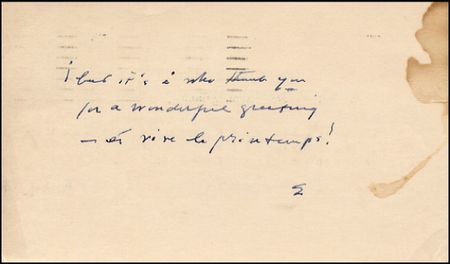 ¡but it's i who thank you
for a wonderful greeting
— et vive le printemps!
E